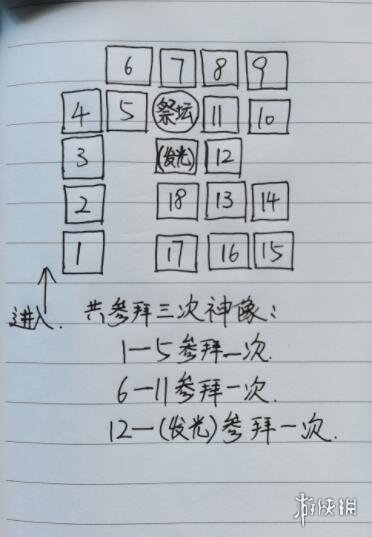 6 7 8 9
4 5 祭坛 11 10
3 (发光) 12
2 18 13 14
1 17 16 15
进入.
共参拜三次神像:
1—5参拜一次.
6—11参拜一次.
12—(发光)参拜一次.
游侠网